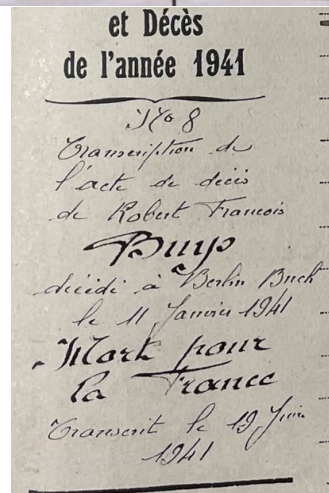 et Décès
de l'année 1941
No 8
Transcription de
l'acte de décès
de Robert Francois
Buys
décédé à Berlin Buch
le 11 Janvier 1941
Mort pour
la France
Transcrit le 19 Juin
1941